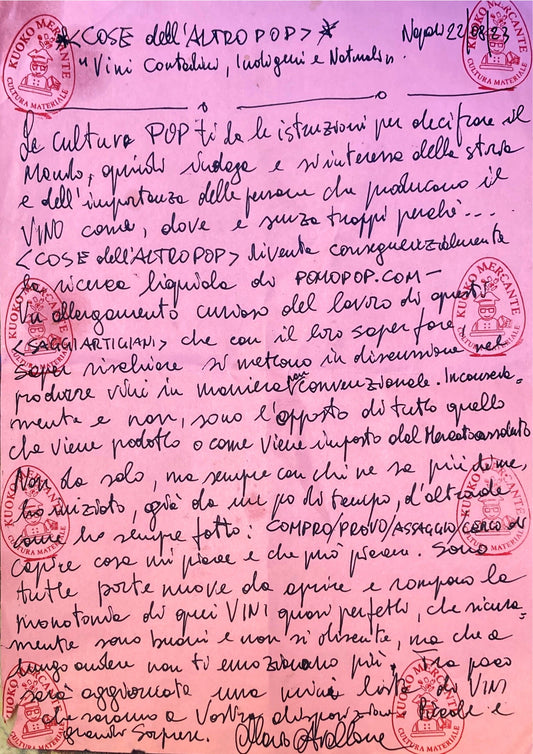 <COSE dell'ALTRO POP>
Napoli 22/08/23
"Vini Contadini, Indigeni e Naturali".
La cultura POP ti da le istruzioni per decifrare il
Mondo, quindi indaga e si interessa della storia
e dell'importanza delle persone che producono il
VINO come, dove e senza troppi perchè...
<COSE dell'ALTROPOP> diventa consequenzialmente
la ricerca liquida di POMOPOP.COM-
Un allargamento curioso del lavoro di questi
<SAGGI ARTIGIANI> che con il loro saper fare e
saper rischiare si mettono in discussione nel
produrre vini in maniera non convenzionale. Inconscia-
mente e non, sono l'opposto di tutto quello
che viene podotto o come viene imposto dal Mercato assoluto
Non da solo, ma sempre con chi ne sa più di me,
ho iniziato, già da un po di tempo, d'altronde
come ho sempre fatto: COMPRO/PROVO/ASSAGGIO/CERCO di
capire cosa mi piace e che può piacere. Sono
tutte porte nuove da aprire e rompono la
monotonia di quei VINI quasi perfetti, che sicura-
mente sono buoni e non si discute, ma che a
lungo andare non ti emozionano più. Tra poco
sarà aggiornata una lista di VINI
che saranno a Vostra disposizione. Piccole e
Grandi Sorprese.
KUOKO MERCANTE
CULTURA MATERIALE
KUOKO MERCANTE
CULTURA MATERIALE
KUOKO MERCANTE
CULTURA MATERIALE
KUOKO MERCANTE
CULTURA MATERIALE
KUOKO MERCANTE
CULTURA MATERIALE
KUOKO MERCANTE
CULTURA MATERIALE
KUOKO MERCANTE
CULTURA MATERIALE
KUOKO MERCANTE
CULTURA MATERIALE